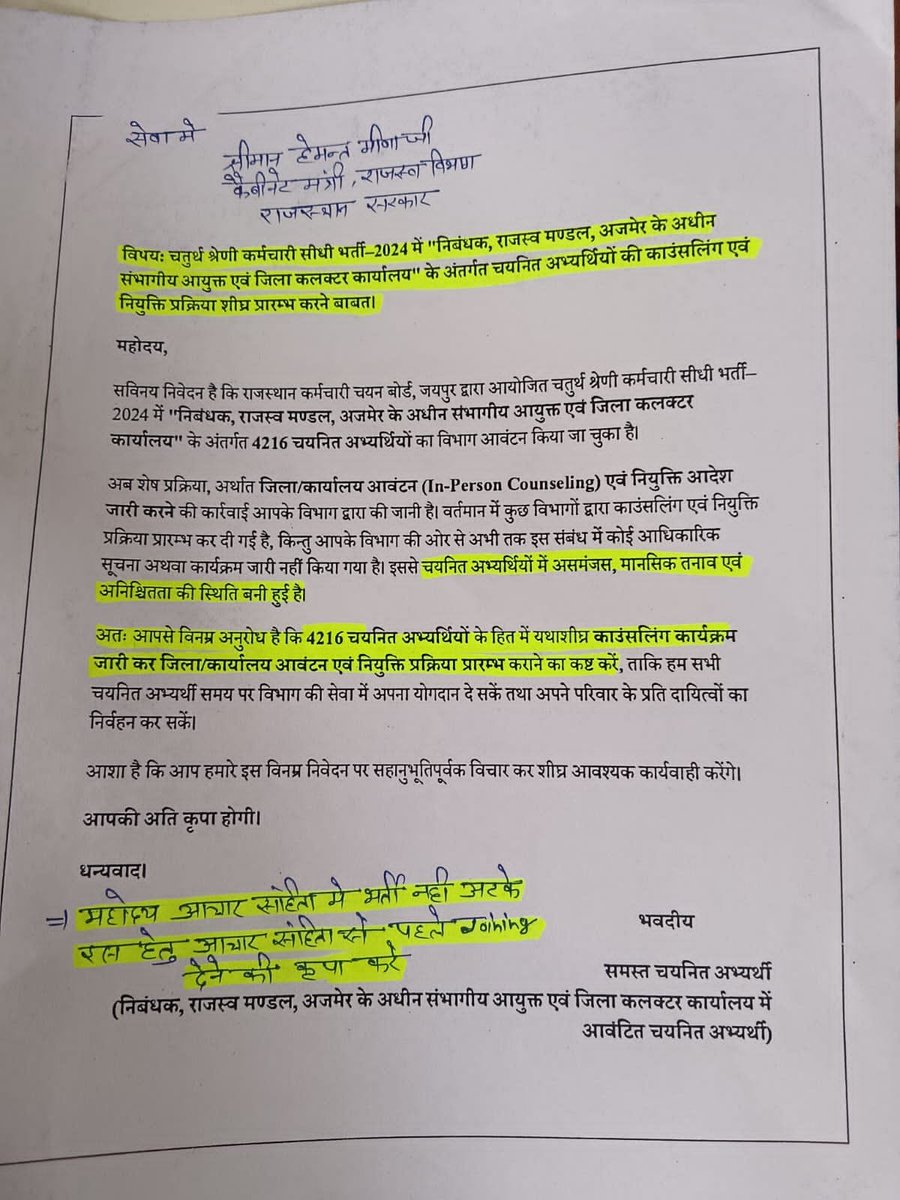 सेवा मे
श्रीमान् हेमन्त मीणा जी
कैबीनेट मंत्री, राजस्व विभाग
राजस्थान सरकार
विषय: चतुर्थ श्रेणी कर्मचारी सीधी भर्ती–2024 में "निबंधक, राजस्व मण्डल, अजमेर के अधीन
संभागीय आयुक्त एवं जिला कलक्टर कार्यालय" के अंतर्गत चयनित अभ्यर्थियों की काउंसलिंग एवं
नियुक्ति प्रक्रिया शीघ्र प्रारम्भ करने बाबत।
महोदय,
सविनय निवेदन है कि राजस्थान कर्मचारी चयन बोर्ड, जयपुर द्वारा आयोजित चतुर्थ श्रेणी कर्मचारी सीधी भर्ती–
2024 में "निबंधक, राजस्व मण्डल, अजमेर के अधीन संभागीय आयुक्त एवं जिला कलक्टर
कार्यालय" के अंतर्गत 4216 चयनित अभ्यर्थियों का विभाग आवंटन किया जा चुका है।
अब शेष प्रक्रिया, अर्थात जिला/कार्यालय आवंटन (In-Person Counseling) एवं नियुक्ति आदेश
जारी करने की कार्रवाई आपके विभाग द्वारा की जानी है। वर्तमान में कुछ विभागों द्वारा काउंसलिंग एवं नियुक्ति
प्रक्रिया प्रारम्भ कर दी गई है, किन्तु आपके विभाग की ओर से अभी तक इस संबंध में कोई आधिकारिक
सूचना अथवा कार्यक्रम जारी नहीं किया गया है। इससे चयनित अभ्यर्थियों में असमंजस, मानसिक तनाव एवं
अनिश्चितता की स्थिति बनी हुई है।
अतः आपसे विनम्र अनुरोध है कि 4216 चयनित अभ्यर्थियों के हित में यथाशीघ्र काउंसलिंग कार्यक्रम
जारी कर जिला/कार्यालय आवंटन एवं नियुक्ति प्रक्रिया प्रारम्भ कराने का कष्ट करें, ताकि हम सभी
चयनित अभ्यर्थी समय पर विभाग की सेवा में अपना योगदान दे सकें तथा अपने परिवार के प्रति दायित्वों का
निर्वहन कर सकें।
आशा है कि आप हमारे इस विनम्र निवेदन पर सहानुभूतिपूर्वक विचार कर शीघ्र आवश्यक कार्यवाही करेंगे।
आपकी अति कृपा होगी।
धन्यवाद।
⇒ महोदय आचार संहिता मे भर्ती नही अटके
हेतु आचार संहिता से पहले Joining
देने की कृपा करे
भवदीय
समस्त चयनित अभ्यर्थी
(निबंधक, राजस्व मण्डल, अजमेर के अधीन संभागीय आयुक्त एवं जिला कलक्टर कार्यालय में
आवंटित चयनित अभ्यर्थी)